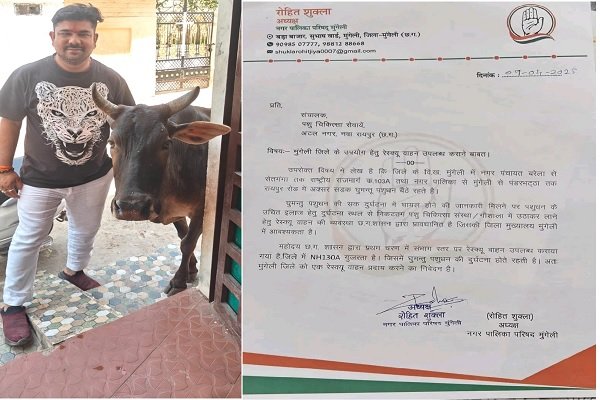 रोहित शुक्ला
अध्यक्ष
नगर पालिका परिषद मुंगेली
बड़ा बाजार, सुभाष वार्ड, मुंगेली, जिला-मुंगेली (छ.ग.)
90985 07777, 98812 88668
shuklarohitjiya0007@gmail.com
दिनांक :
प्रति,
संचालक,
पशु चिकित्सा सेवायें,
अटल नगर, नवा रायपुर (छ.ग.)
विषयः- मुंगेली जिले के उपयोग हेतु रेस्क्यू वाहन उपलब्ध कराने बाबत्।
--00--
उपरोक्त विषय में लेख है कि जिले के वि.खं. मुंगेली में नगर पंचायत बरेला से
सेतगंगा तक राष्ट्रीय राजमार्ग क्र.103A तथा नगर पालिका से मुंगेली से पंडरभट्ठा तक
रायपुर रोड में अक्सर सड़क घुमन्तु पशुधन बैठे रहते है।
घुमन्तु पशुधन की सड़क दुर्घटना में घायल होने की जानकारी मिलने पर पशुधन के
उचित ईलाज हेतु दुर्घटना स्थल से निकटतम पशु चिकित्सा संस्था / गौशाला में उठाकर लाने
हेतु रेस्क्यू वाहन की व्यवस्था छ.ग.शासन द्वारा प्रावधानित है जिसकी जिला मुख्यालय मुंगेली
में आवश्यकता है।
महोदय छ.ग. शासन द्वारा प्रथम चरण में संभाग स्तर पर रेस्क्यू वाहन उपलब्ध कराया
गया है.जिले में NH130A गुजरता है। जिसमें घुमन्तु पशुधन की दुर्घटना होते रहती है। अतः
मुंगेली जिले को एक रेस्क्यू वाहन प्रदाय करने का निवेदन है।
अध्यक्ष
रोहित शुक्ला
नगर पालिका परिषद मुंगेली
(रोहित शुक्ला)
अध्यक्ष
नगर पालिका परिषद मुंगेली